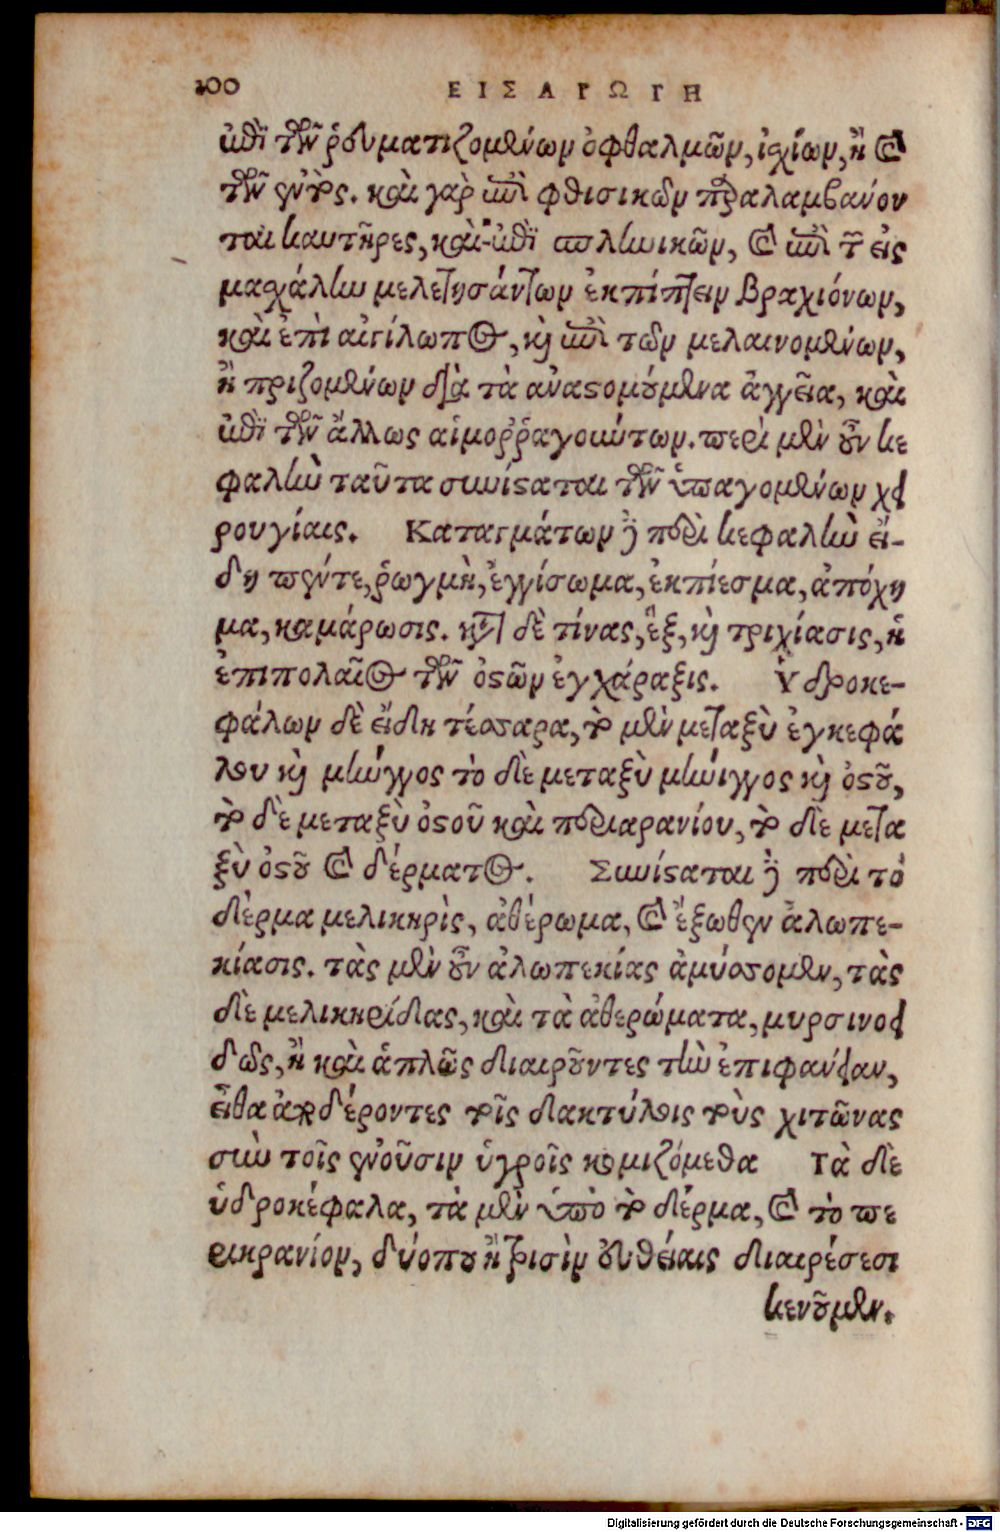 100 ΕΙΣΑΓΩΓΗ
ἐπὶ τῶν ῥευματιζομένων ὀφθαλμῶν, ἰχίων, ἢ καὶ
τῶν ἐντὸς. καὶ γὰρ ἐπὶ φθισικῶν παραλαμβάνον
ται καυτῆρες, καὶ ἐπὶ σπλωικῶν, καὶ ἐπὶ τῶν εἰς
μαχάλην μελετησάντων ἐκπίπτειν βραχιόνων,
καὶ ἐπὶ αἰγίλωπος, καὶ ἐπὶ τῶν μελαινομένων,
ἢ πριζομένων διὰ τὰ ἀναστομούμενα ἀγγεῖα, καὶ
ἐπὶ τῶν ἄλλως αἱμοῤῥαγούντων. περὶ μὲν οὖν κε
φαλὴν ταῦτα συνίσταται τῶν ὑπαγομένων χει
ρουγίαις. Καταγμάτων δὲ περὶ κεφαλὴν εἴ-
δη πέντε, ῥωγμὴ, ἐγγίσωμα, ἐκπίεσμα, ἀπόχη
μα, καμάρωσις. κατὰ δὲ τίνας, ἓξ, καὶ τριχίασις, ἡ
ἐπιπολαῖος τῶν ὀστῶν ἐγχάραξις. Ὑδροκε-
φάλων δὲ εἴδη τέσσαρα, τὸ μὲν μεταξὺ ἐγκεφά
λου καὶ μήνιγγος τὸ δὲ μεταξὺ μήνιγγος καὶ ὀστοῦ,
τὸ δὲ μεταξὺ ὀστοῦ καὶ περιαρανίου, τὸ δὲ μετα
ξὺ ὀστοῦ καὶ δέρματος. Συνίσταται δὲ περὶ τὸ
δέρμα μελικηρὶς, ἀθέρωμα, καὶ ἔξωθεν ἀλωπε-
κίασις. τὰς μὲν οὖν ἀλωπεκίας ἀμύσσομεν, τὰς
δὲ μελικηρίδας, καὶ τὰ ἀθερώματα, μυρσινοει
δῶς, ἢ καὶ ἁπλῶς διαιροῦντες τὴν ἐπιφανείαν,
εἶθα ἀποδέροντες τοῖς δακτύλοις τοὺς χιτῶνας
σὺν τοῖς ἐνοῦσιν ὑγροῖς κομιζόμεθα Τὰ δὲ
ὑδροκέφαλα, τὰ μὲν ὑπὸ τὸ δέρμα, καὶ τὸ πε
ρικρανίον, δύοπου ἢ τρισὶν εὐθείαις διαιρέσεσι
κενοῦμεν.
Digitalisierung gefördert durch die Deutsche Forschungsgemeinschaft - DFG